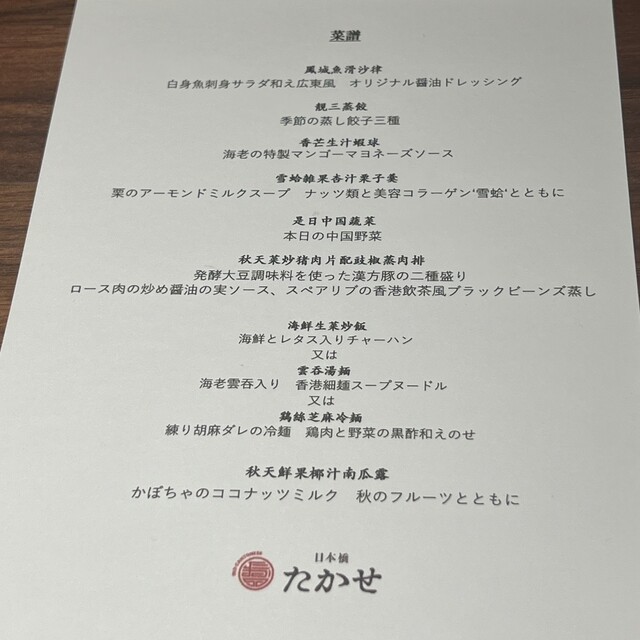 菜譜
鳳城魚滑沙律
白身魚刺身サラダ和え広東風　オリジナル醤油ドレッシング
靚三蒸餃
季節の蒸し餃子三種
香芒生汁蝦球
海老の特製マンゴーマヨネーズソース
雪蛤雑果杏汁栗子羹
栗のアーモンドミルクスープ　ナッツ類と美容コラーゲン‘雪蛤’とともに
是日中国蔬菜
本日の中国野菜
秋天菜炒猪肉片配豉椒蒸肉排
発酵大豆調味料を使った漢方豚の二種盛り
ロース肉の炒め醤油の実ソース、スペアリブの香港飲茶風ブラックビーンズ蒸し
海鮮生菜炒飯
海鮮とレタス入りチャーハン
又は
雲呑湯麺
海老雲呑入り　香港細麺スープヌードル
又は
鶏絲芝麻冷麺
練り胡麻ダレの冷麺　鶏肉と野菜の黒酢和えのせ
秋天鮮果椰汁南瓜露
かぼちゃのココナッツミルク　秋のフルーツとともに
日本橋
たかせ